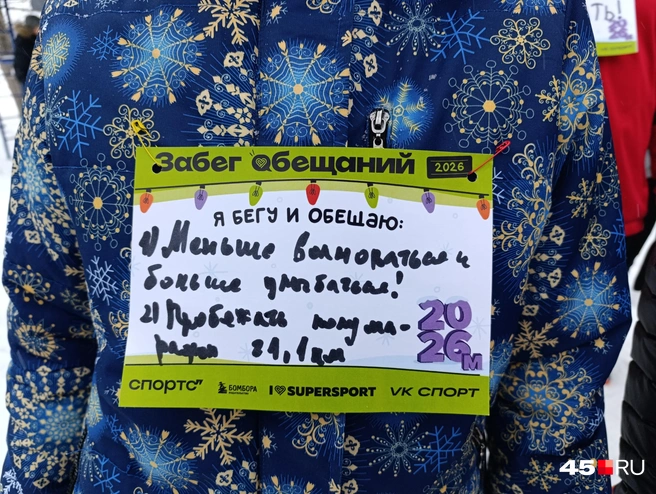 ТЬ!
Забег Обещаний 2026
Я БЕГУ И ОБЕЩАЮ:
1) Меньше волноваться и
больше улыбаться!
2) Пробежать полума-
рафон 21,1 км
20
26 М
спортс"
БОМБОРА
I SUPERSPORT
VK СПОРТ
45.RU